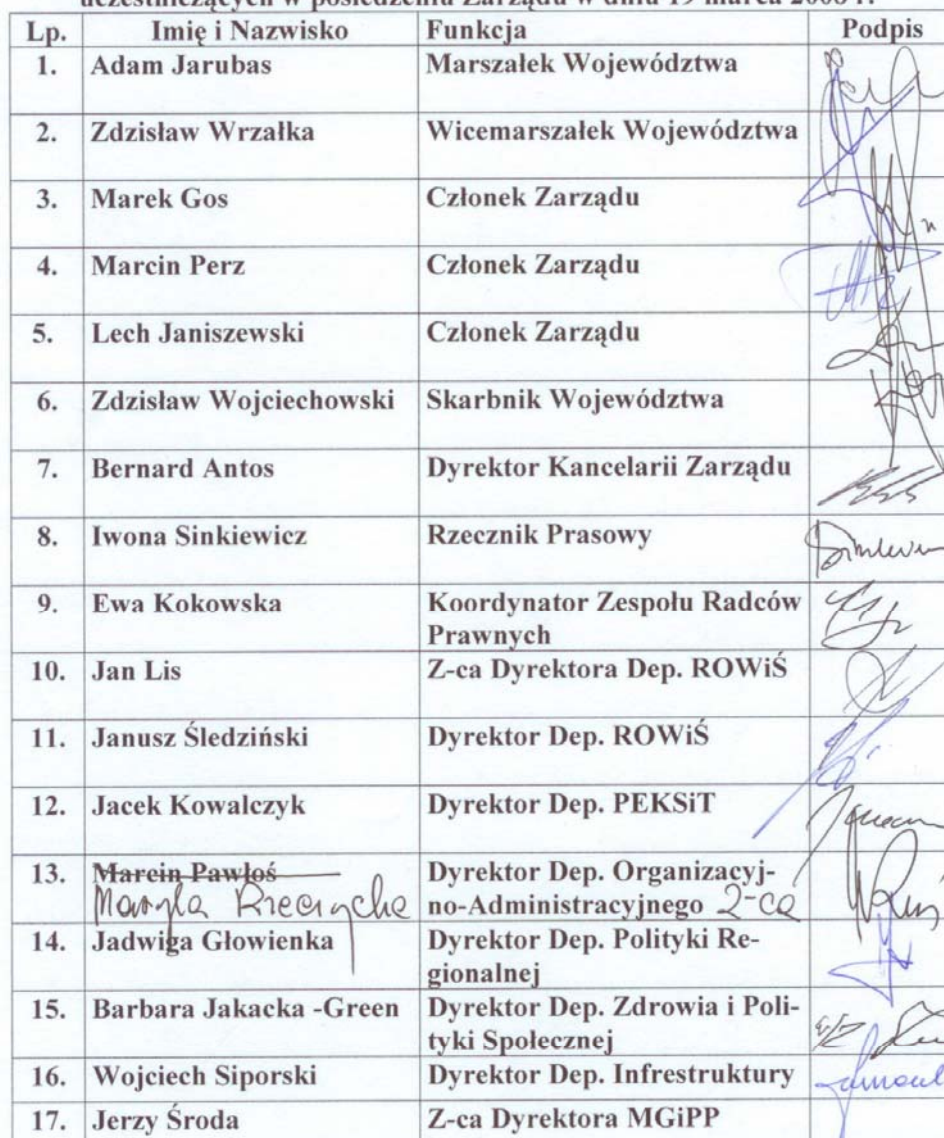 uczestniczących w posiedzeniu Zarządu w dniu 19 marca 2008 r.
Lp. Imię i Nazwisko Funkcja Podpis
1. Adam Jarubas Marszałek Województwa
2. Zdzisław Wrzałka Wicemarszałek Województwa
3. Marek Gos Członek Zarządu
4. Marcin Perz Członek Zarządu
5. Lech Janiszewski Członek Zarządu
6. Zdzisław Wojciechowski Skarbnik Województwa
7. Bernard Antos Dyrektor Kancelarii Zarządu
8. Iwona Sinkiewicz Rzecznik Prasowy
9. Ewa Kokowska Koordynator Zespołu Radców
Prawnych
10. Jan Lis Z-ca Dyrektora Dep. ROWiŚ
11. Janusz Śledziński Dyrektor Dep. ROWiŚ
12. Jacek Kowalczyk Dyrektor Dep. PEKSiT
13. Marcin Pawłoś Dyrektor Dep. Organizacyj-
Maryla no-Administracyjnego Z-ca
14. Jadwiga Głowienka Dyrektor Dep. Polityki Re-
gionalnej
15. Barbara Jakacka -Green Dyrektor Dep. Zdrowia i Poli-
tyki Społecznej
16. Wojciech Siporski Dyrektor Dep. Infrestruktury
17. Jerzy Środa Z-ca Dyrektora MGiPP